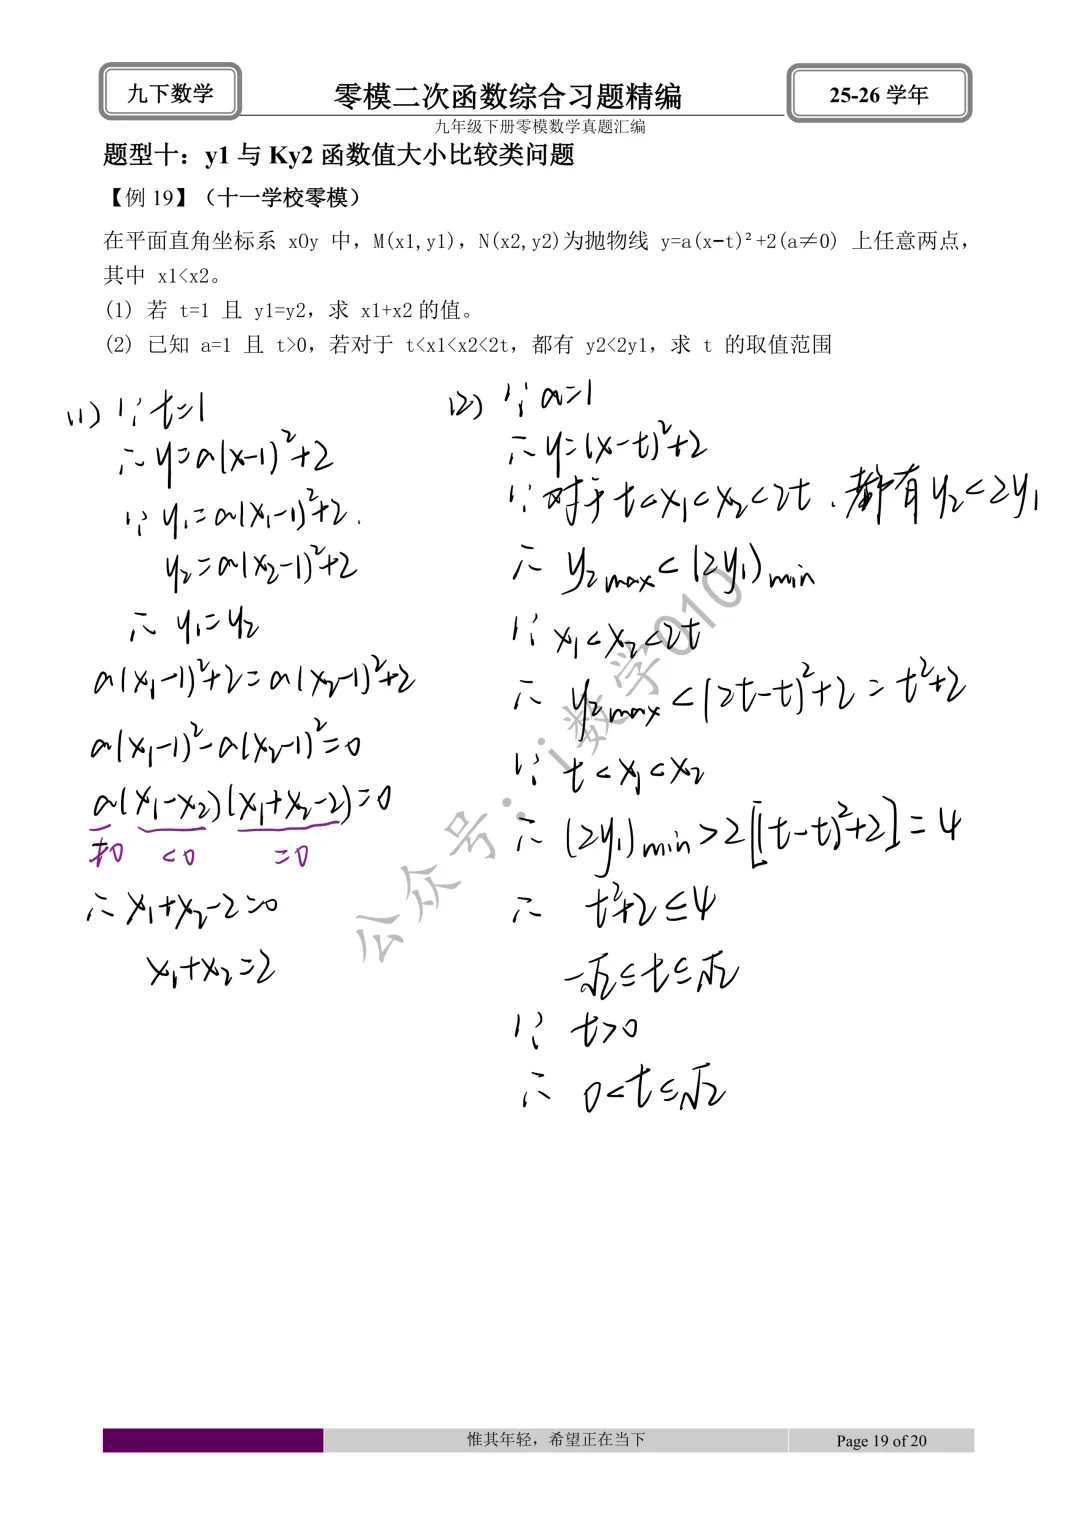 九下数学
零模二次函数综合习题精编
25-26 学年
九年级下册零模数学真题汇编
题型十：y1 与 Ky2 函数值大小比较类问题
【例 19】（十一学校零模）
在平面直角坐标系 xOy 中，M(x1,y1)，N(x2,y2)为抛物线 y=a(x−t)²+2(a≠0) 上任意两点，
其中 x1<x2。
(1) 若 t=1 且 y1=y2，求 x1+x2 的值。
(2) 已知 a=1 且 t>0，若对于 t<x1<x2<2t，都有 y2<2y1，求 t 的取值范围
(1) ∵ t=1
∴ y=a(x-1)²+2
∵ y₁=a(x₁-1)²+2.
y₂=a(x₂-1)²+2
∴ y₁=y₂
a(x₁-1)²+2=a(x₂-1)²+2
a(x₁-1)²-a(x₂-1)²=0
a(x₁-x₂)(x₁+x₂-2)=0
≠0 <0 =0
∴ x₁+x₂-2=0
x₁+x₂=2
(2) ∵ a=1
∴ y=(x-t)²+2
∵ 对于 t<x₁<x₂<2t，都有 y₂<2y₁
∴ y₂max<(2y₁)min
∵ x₁<x₂<2t
∴ y₂max<(2t-t)²+2=t²+2
∵ t<x₁<x₂
∴ (2y₁)min>2[(t-t)²+2]=4
∴ t²+2≤4
-√2≤t≤√2
∵ t>0
∴ 0<t≤√2
公众号：i数学010
惟其年轻，希望正在当下
Page 19 of 20